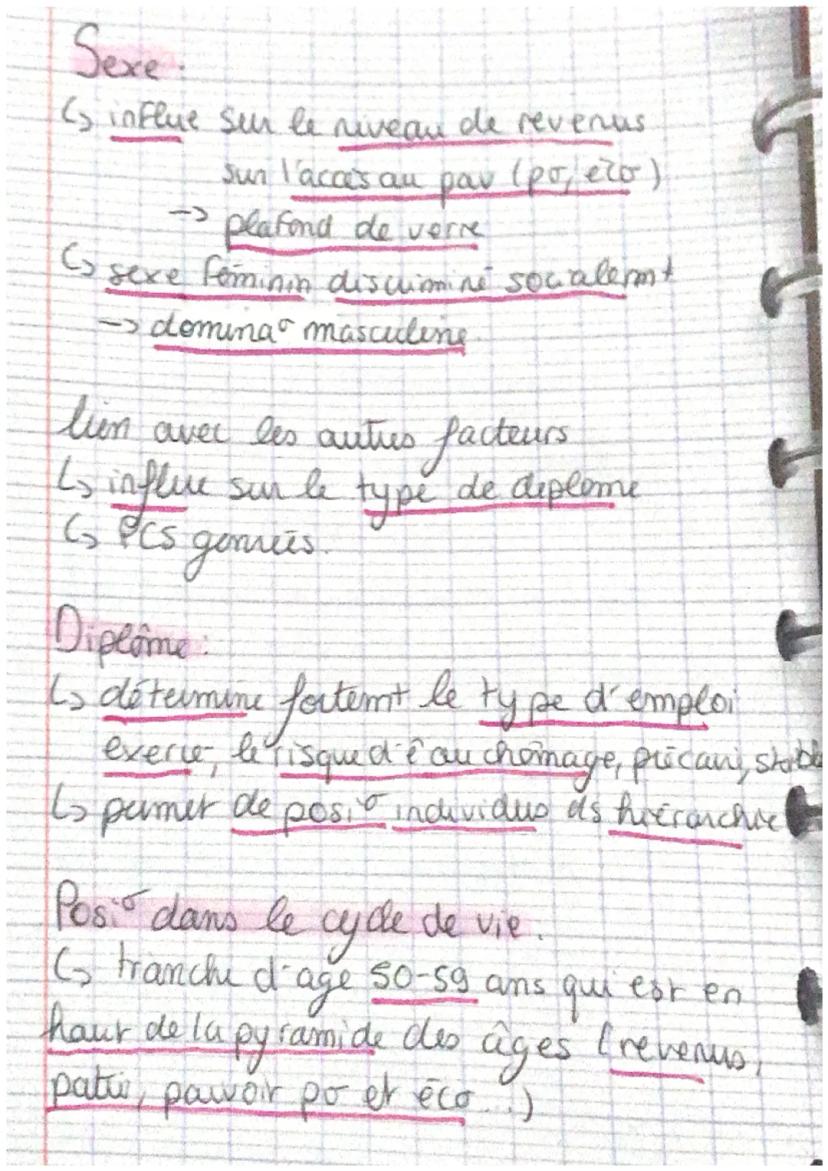 Sexe :
↳ influe sur le niveau de revenus
sur l'accès au pav (pσ, éco)
-> plafond de verre
↳ sexe féminin discriminé socialemt
-> dominaσ masculine
lien avec les autres facteurs
↳ influe sur le type de diplome
↳ PCS genrées.
Diplôme :
↳ détermine fortemt le type d'emploi
exercé, le risque d'ê au chômage, précari, stable
↳ permet de posiσ individus ds hiérarchie
Posiσ dans le cycle de vie.
↳ tranche d'age 50-59 ans qui est en
haut de la pyramide des âges (revenus,
patri, pouvoir pσ et éco...)